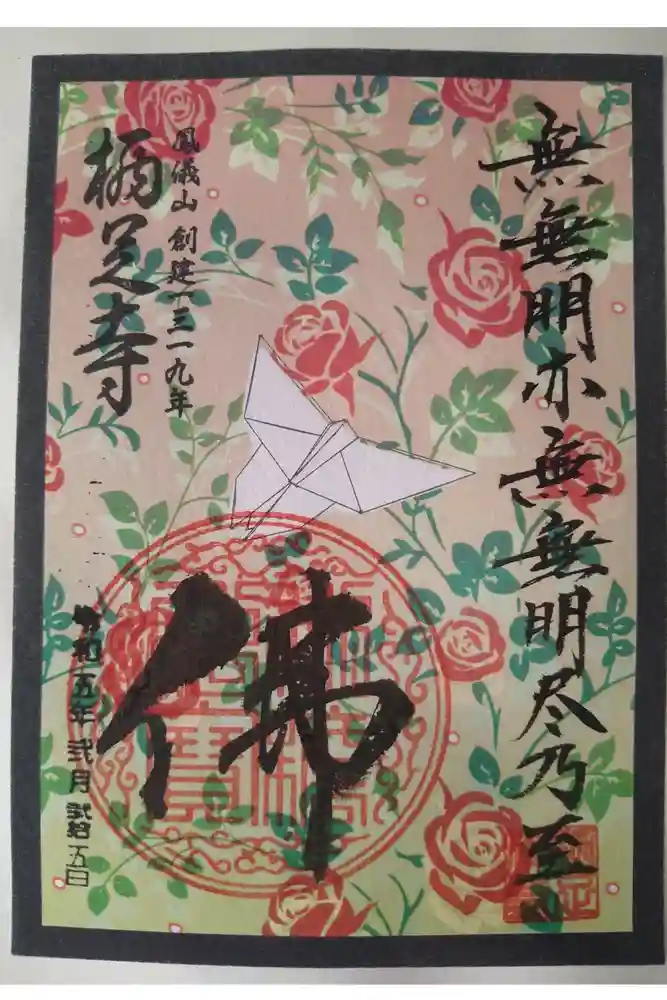 無無明亦無無明尽乃至
佛
鳳儀山 創建一三一九年
橘芝寺
令和五年 弐月 弐拾五日